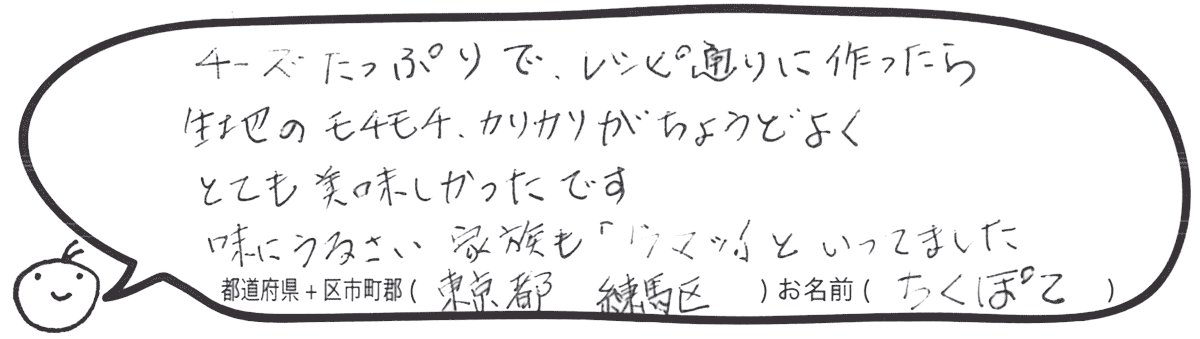 チーズたっぷりで、レシピ通りに作ったら
生地のモチモチ、カリカリがちょうどよく
とても美味しかったです
味にうるさい 家族も「ウマッ!」といってました
都道府県+区市町郡( 東京都 練馬区 )お名前( ちくぽて )